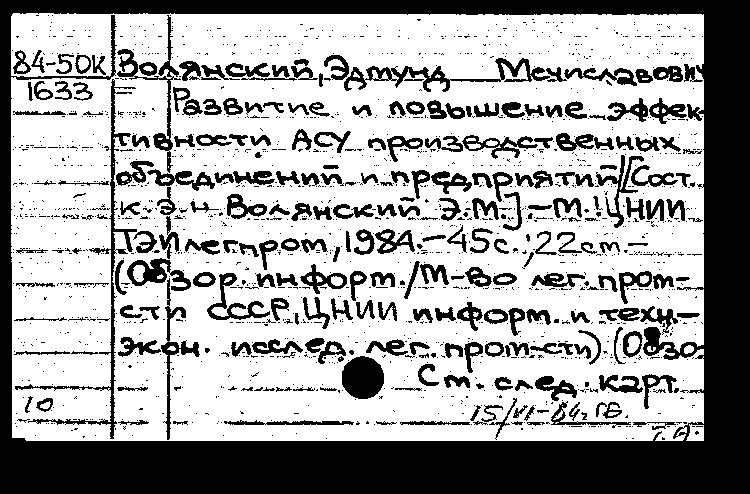 84-50К Волянский, Эдмунд Мечиславович
1633 = Развитие и повышение эффек-
тивности АСУ производственных
объединений и предприятий/[Сост.
к.э.н. Волянский Э.М.].-М.:ЦНИИ
ТЭИлегпром, 1984.-45с.; 22см.-
(Обзор. информ./М-во лег. пром-
сти СССР, ЦНИИ информ. и техн.-
экон. исслед. лег. пром-сти) (Обзо-
См. след. карт.
10 15/VI-84г.
Т.А.